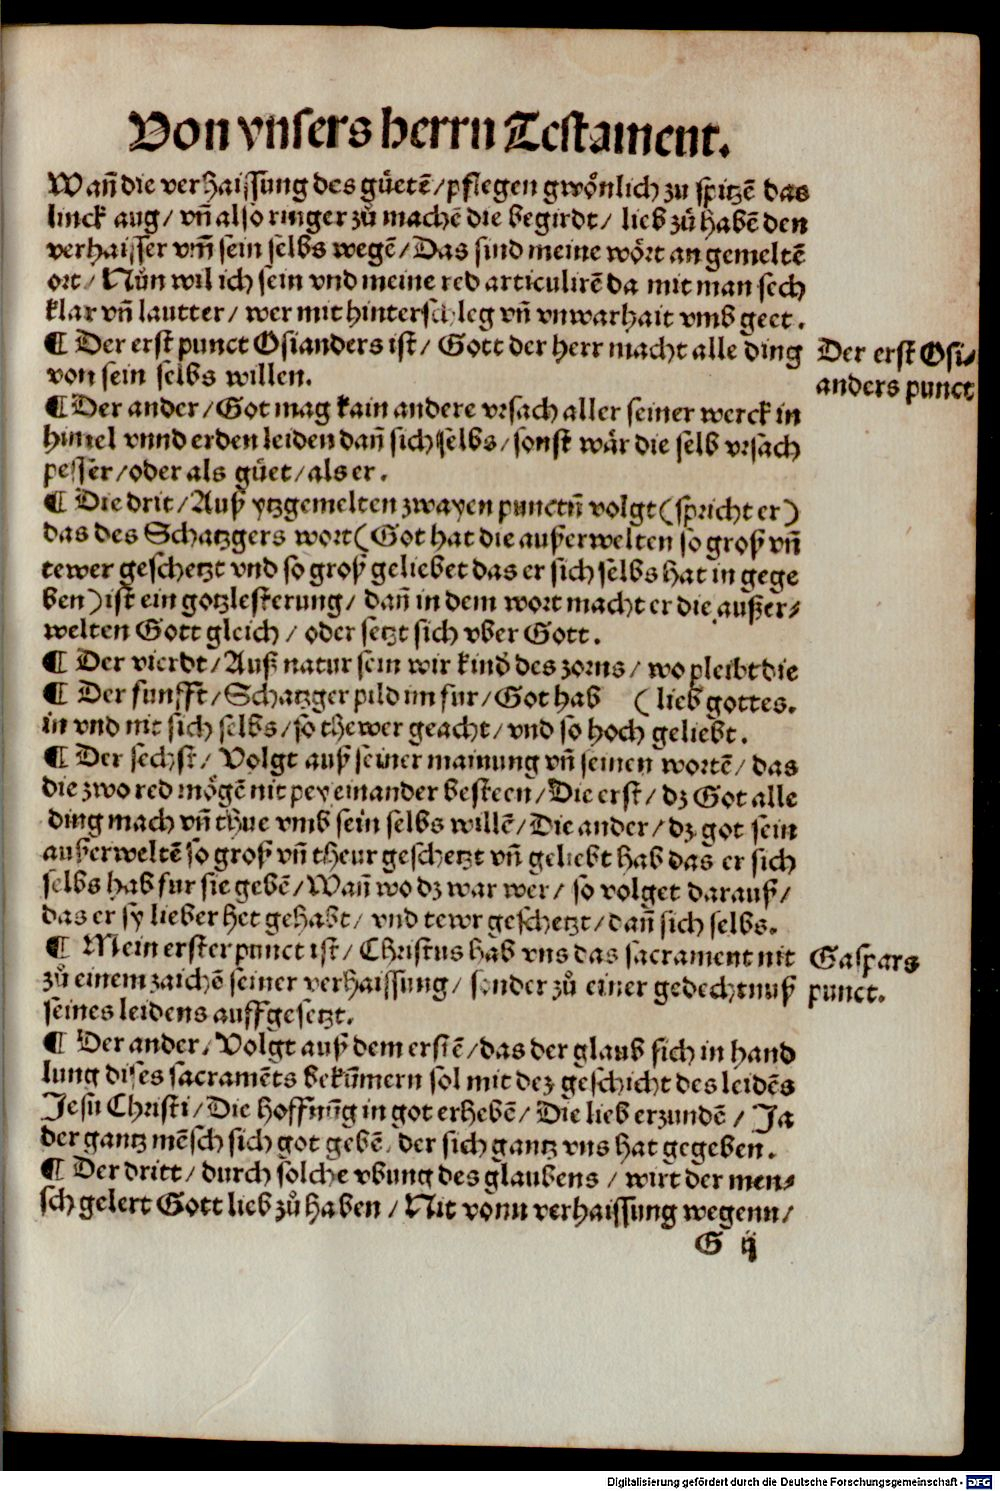 Von vnsers herrn Testament.
Wañ die verhaissung des gůetẽ / pflegen gwönlich zu spitzẽ das
linck aug / vñ also ringer zů machẽ die begirdt / lieb zů habẽ den
verhaisser vm̃ sein selbs wegẽ / Das sind meine wört an gemeltẽ
ort / Nůn wil ich sein vnd meine red articulirẽ da mit man sech
klar vñ lautter / wer mit hinterschleg vñ vnwarhait vmb geet.
¶ Der erst punct Osianders ist / Gott der herr macht alle ding
von sein selbs willen.
Der erst Osi⸗
anders punct
¶ Der ander / Got mag kain andere vrsach aller seiner werck in
himel vnnd erden leiden dañ sich selbs / sonst wär die selb vrsach
pesser / oder als gůet / als er.
¶ Die drit / Auß ytzgemelten zwayen punctñ volgt (spricht er)
das des Schatzgers wort (Got hat die außerwelten so groß vñ
tewer geschetzt vnd so groß geliebet das er sich selbs hat in gege
ben) ist ein gotzlesterung / dañ in dem wort macht er die außer⸗
welten Gott gleich / oder setzt sich vber Gott.
¶ Der vierdt / Auß natur sein wir kind des zorns / wo pleibt die
¶ Der funfft / Schatzger pild im fur / Got hab ( lieb gottes.
in vnd mit sich selbs / so thewer geacht / vnd so hoch geliebt.
¶ Der sechst / Volgt auß seiner mainung vñ seinen wortẽ / das
die zwo red mögẽ nit pey einander besteen / Die erst / dz Got alle
ding mach vñ thue vmb sein selbs willẽ / Die ander / dz got sein
außerweltẽ so groß vñ theur geschetzt vñ geliebt hab das er sich
selbs hab fur sie gebẽ / Wañ wo dz war wer / so volget darauß /
das er sy lieber het gehabt / vnd tewr geschetzt / dañ sich selbs.
¶ Mein erster punct ist / Christus hab vns das sacrament nit
zů einem zaichẽ seiner verhaissung / sonder zů einer gedechtnuß
seines leidens auffgesetzt.
Gaspars
punct.
¶ Der ander / Volgt auß dem erstẽ / das der glaub sich in hand
lung dises sacramẽts bekũmern sol mit dez geschicht des leidẽs
Jesu Christi / Die hoffnũg in got erhebẽ / Die lieb erzundẽ / Ja
der gantz mẽsch sich got gebẽ / der sich gantz vns hat gegeben.
¶ Der dritt / durch solche vbung des glaubens / wirt der men⸗
sch gelert Gott lieb zů haben / Nit vonn verhaissung wegenn /
G ij
Digitalisierung gefördert durch die Deutsche Forschungsgemeinschaft - DFG